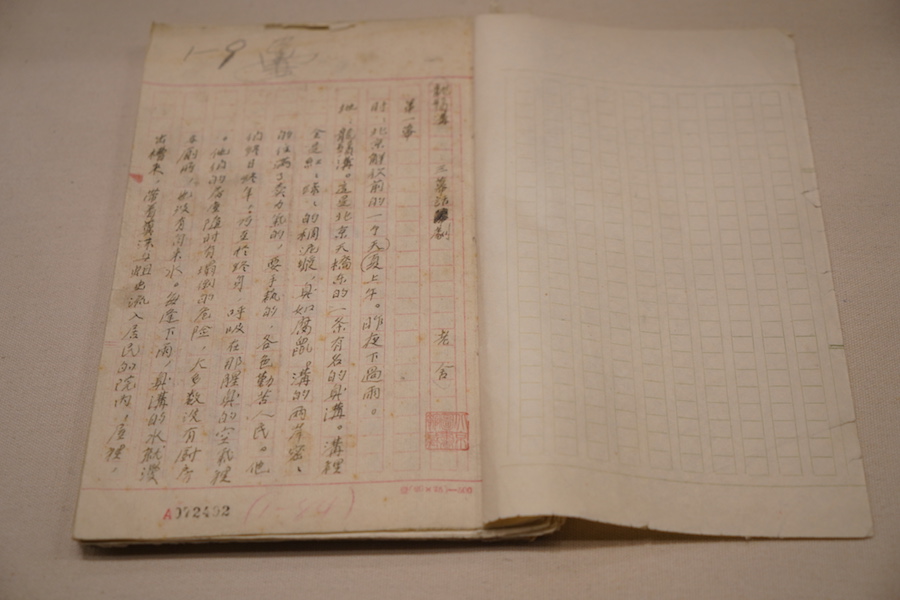 1-9
龍鬚溝——三幕話劇 老舍
第一幕
時：北京解放前的一个天(夏)上午。昨夜下過雨。
地：龍鬚溝。這是北京天橋東的一条有名的臭溝。溝裡
全是紅、綠、的稠泥漿，臭如腐鼠。溝的兩岸密、
的住滿了賣力氣的，耍手藝的，各色勤苦人民。他
們終日終年，乃至於終身，呼吸在那腥臭的空氣裡
。他們的房屋隨時有塌倒的危險，大多數沒有厨房
，也沒有自來水。每逢下雨，臭溝的水就漫
出槽來，帶着糞沫与蛆也流入居民的院内，屋裡，
A072492
(1-84)